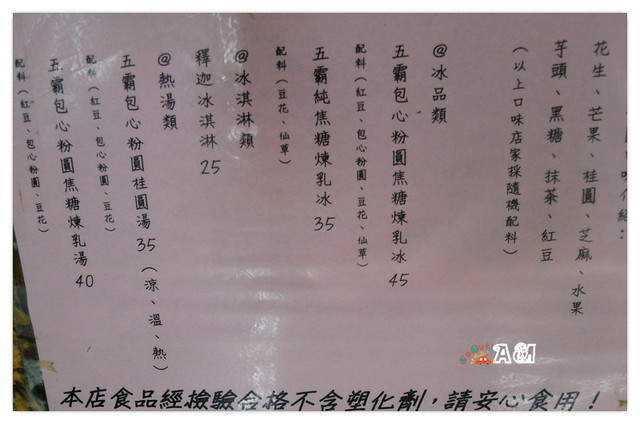 花生、芒果、桂圓、芝麻、水果
芋頭、黑糖、抹茶、紅豆
（以上口味店家採隨機配料）
@冰品類
五霸包心粉圓焦糖煉乳冰45
配料（紅豆、包心粉圓、豆花、仙草）
五霸純焦糖煉乳冰 35
配料（豆花、仙草）
@冰淇淋類
釋迦冰淇淋 25
@熱湯類
五霸包心粉圓桂圓湯 35（涼、溫、熱）
配料（紅豆、包心粉圓、豆花）
五霸包心粉圓焦糖煉乳湯 40
配料（紅豆、包心粉圓、豆花）
本店食品經檢驗合格不含塑化劑，請安心食用！